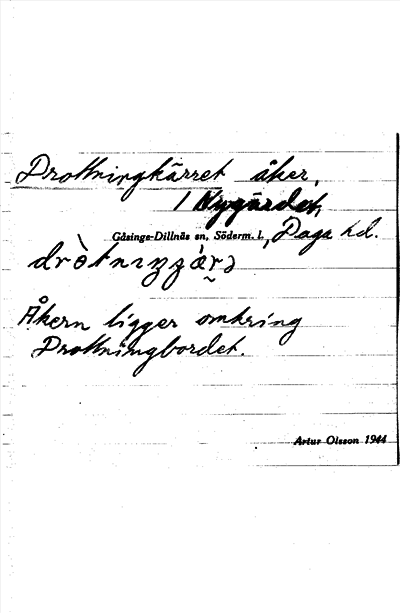 Drottningkärret åker,
1 Nygärdet,
Gåsinge-Dillnäs sn, Söderm. l., Daga hd.
Åkern ligger omkring
Drottningbordet.
Artur Olsson 1944